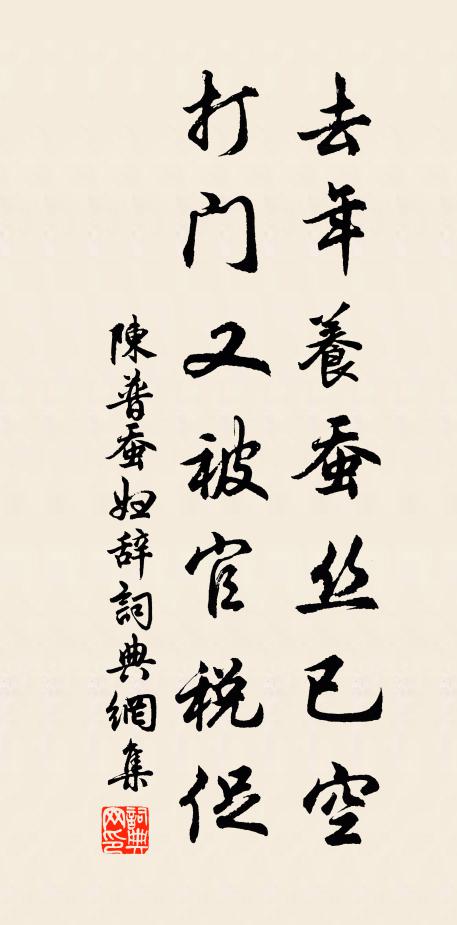 去年養蚕丝已空
打门又被官税促
陳普蚕妇辞詞典網集
詞典网印